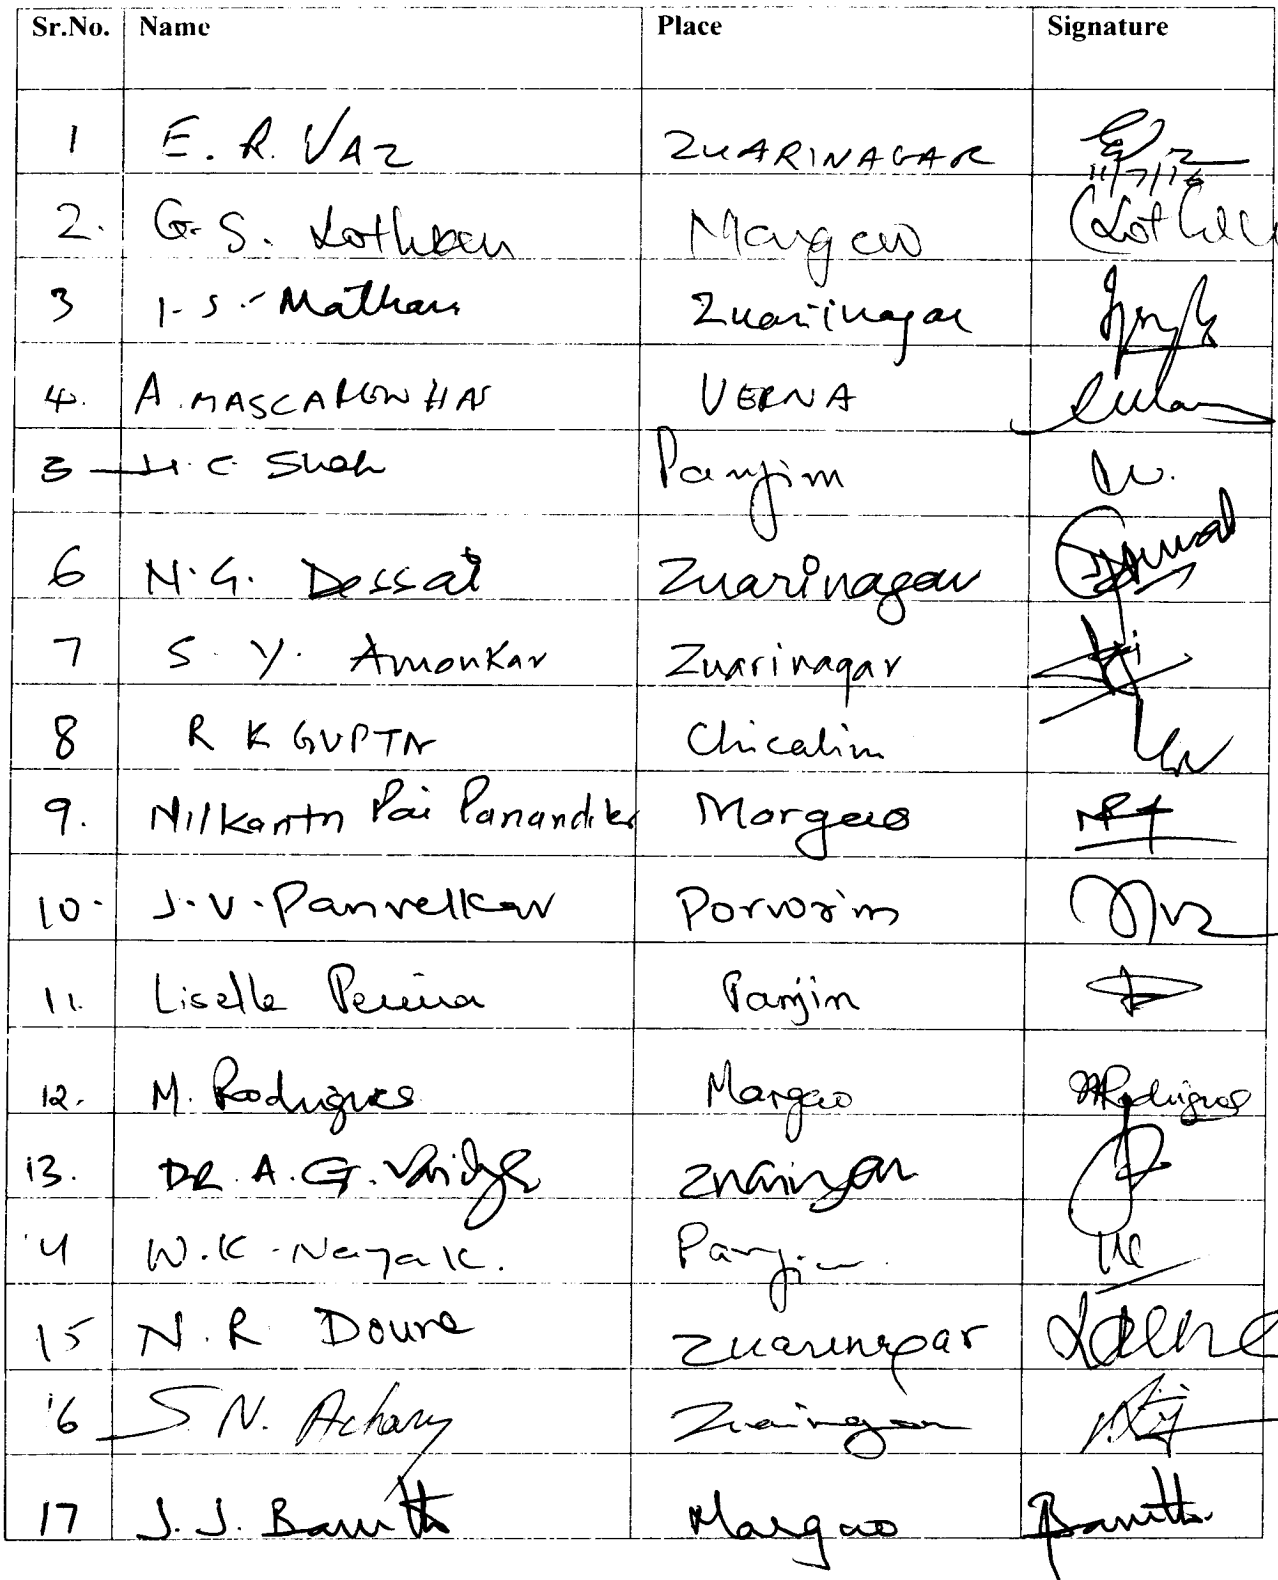 Sr.No. Name Place Signature
1 E. R. VAZ ZUARINAGAR
11/7/16
2. G. S. Margao
3 I. S. Mathan Zuarinagar
4. A. MASCARENHAS VERNA
5 H. C. Shah Panjim
6 N. G. Dessai Zuarinagar
7 S. Y. Amonkar Zuarinagar
8 R K GUPTA Chicalim
9. Nilkanth Pai Panandiker Margao
10. J. V. Panvelkar Porvorim
11. Liselle Pereira Panjim
12. M. Rodrigues Margao MRodrigues
13. DR. A. G. Vaidya Zuarinagar
14 W. K. Nayak. Panjim
15 N. R Doure Zuarinagar
16 S N. Achary Zuarinagar
17 J. J. Barretto Margao Barretto